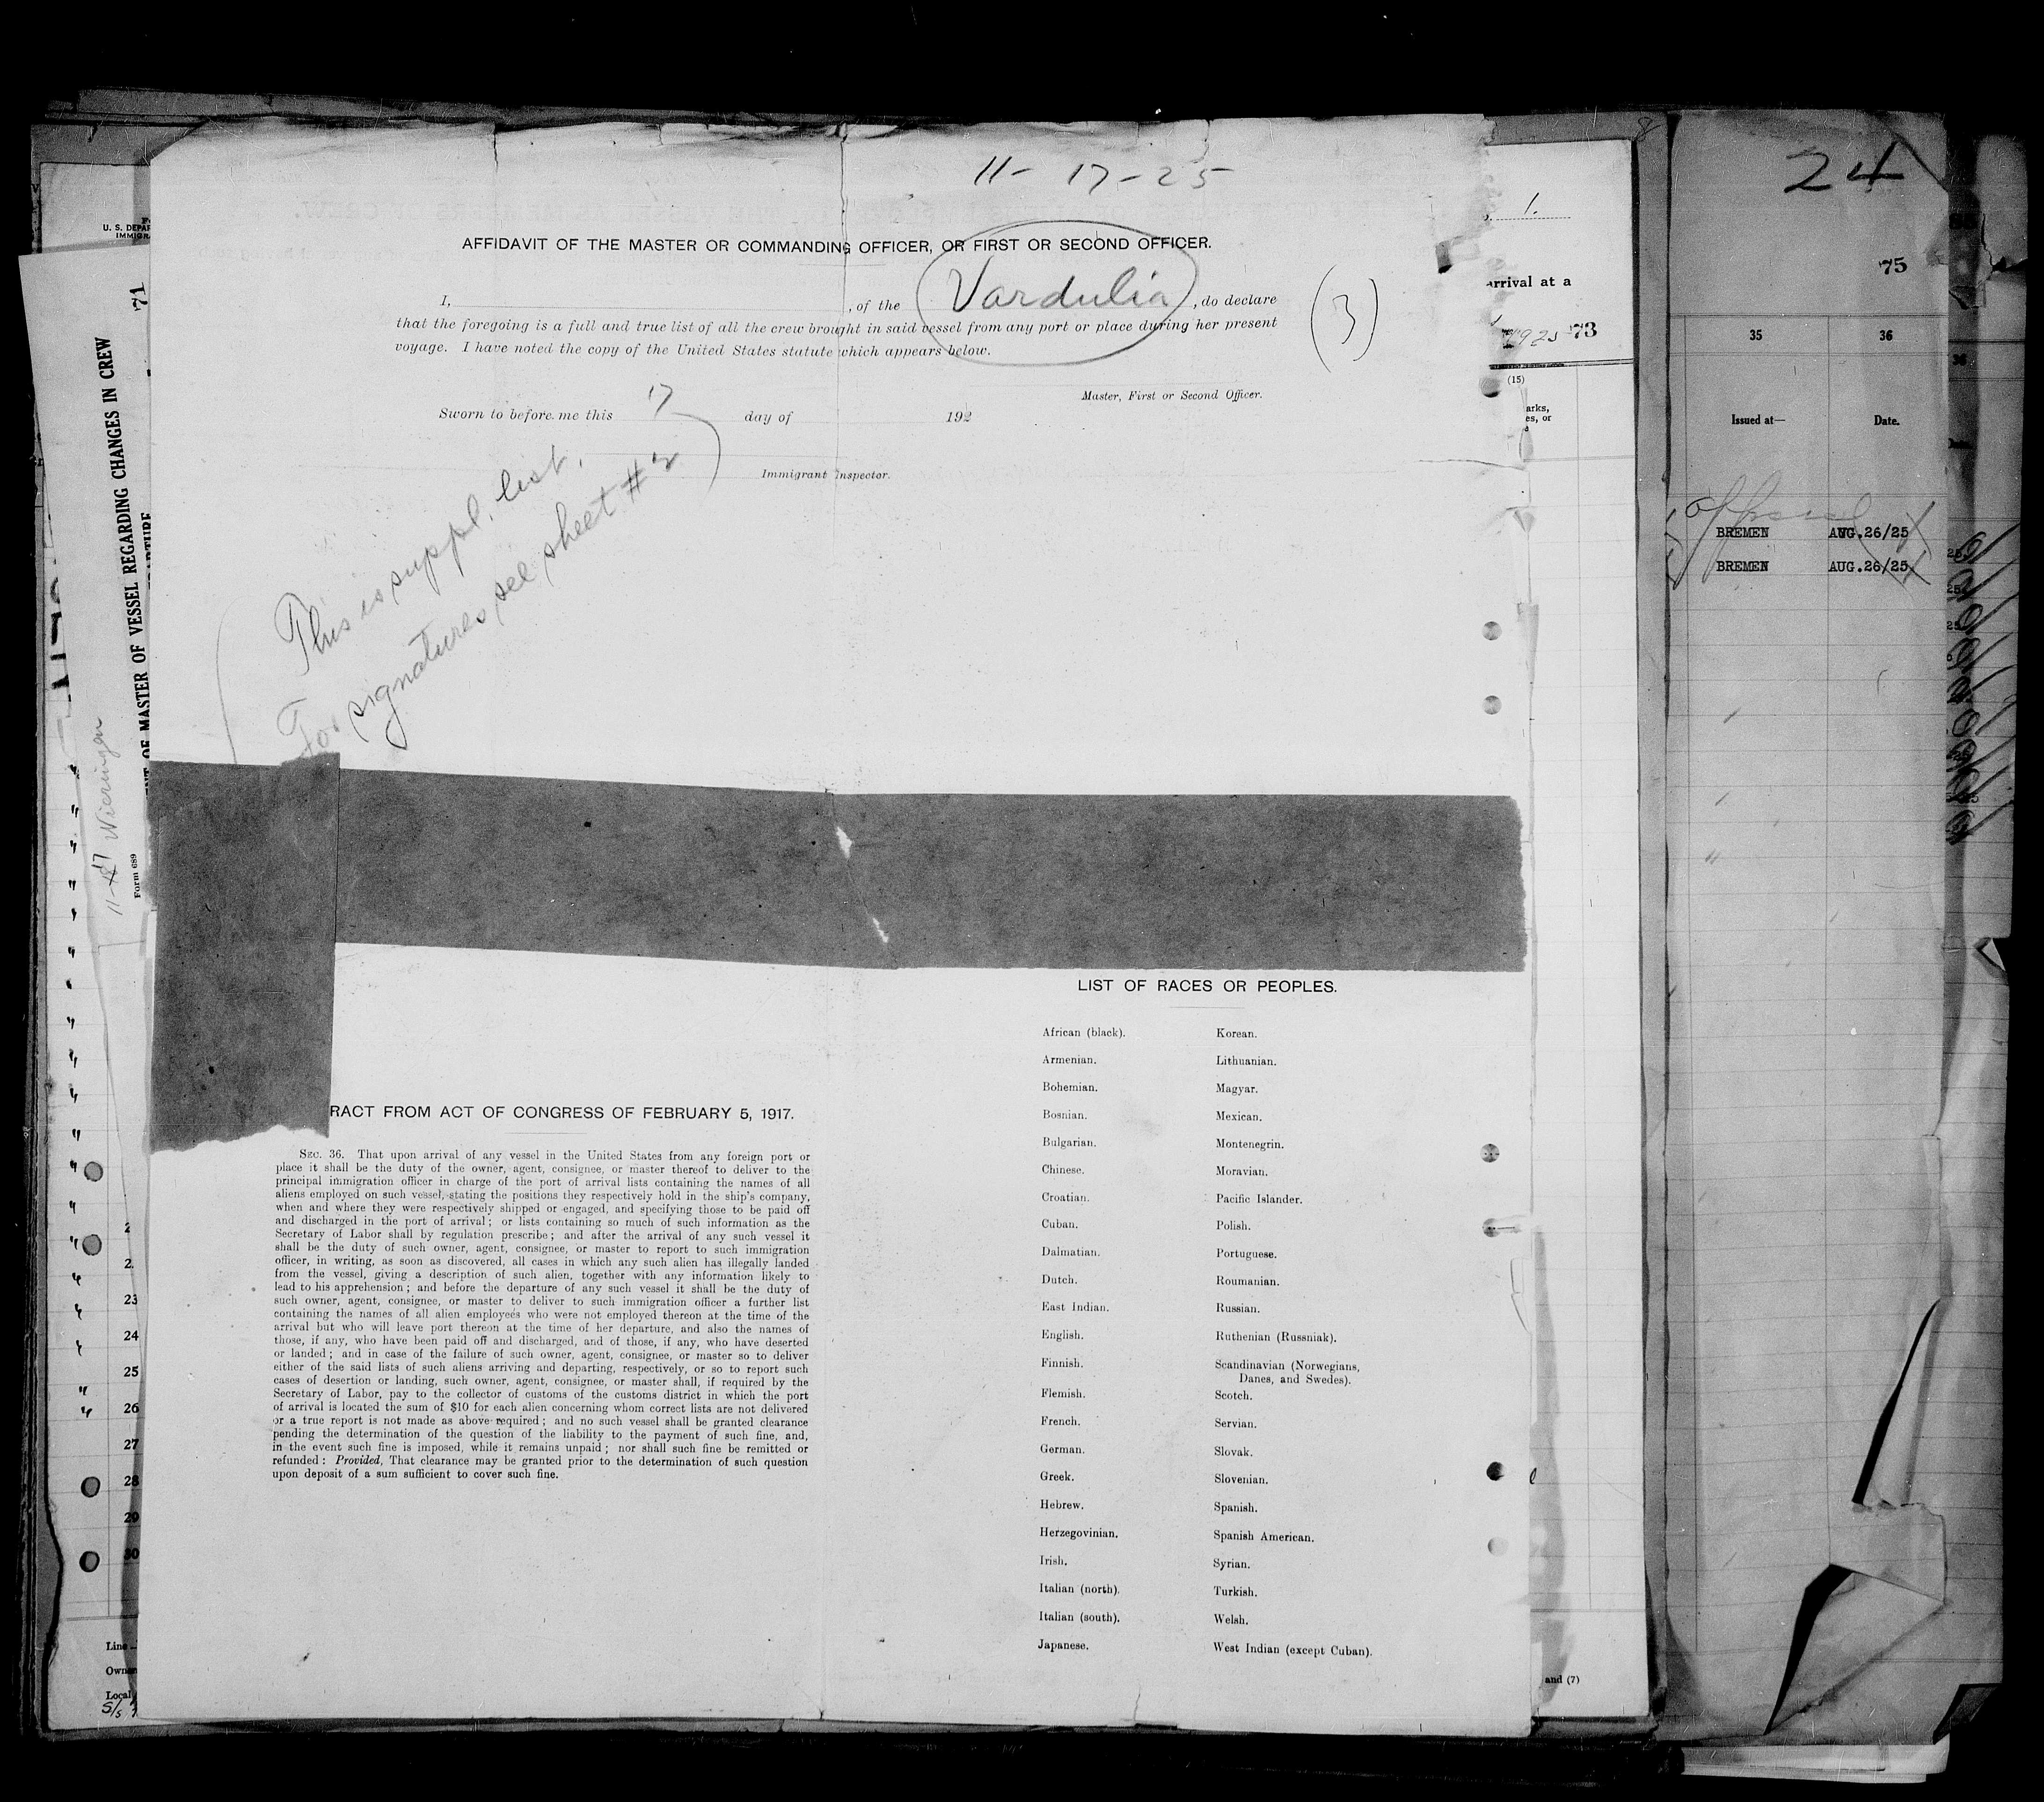 11-17-25
AFFIDAVIT OF THE MASTER OR COMMANDING OFFICER, OR FIRST OR SECOND OFFICER.
I, , of the Vardulia, do declare
that the foregoing is a full and true list of all the crew brought in said vessel from any port or place during her present
voyage. I have noted the copy of the United States statute which appears below.
(3)
Master, First or Second Officer.
Sworn to before me this 17 day of 192
Immigrant Inspector.
This is suppl. list.
For signatures see sheet #2
RACT FROM ACT OF CONGRESS OF FEBRUARY 5, 1917.
SEC. 36. That upon arrival of any vessel in the United States from any foreign port or
place it shall be the duty of the owner, agent, consignee, or master thereof to deliver to the
principal immigration officer in charge of the port of arrival lists containing the names of all
aliens employed on such vessel, stating the positions they respectively hold in the ship's company,
when and where they were respectively shipped or engaged, and specifying those to be paid off
and discharged in the port of arrival; or lists containing so much of such information as the
Secretary of Labor shall by regulation prescribe; and after the arrival of any such vessel it
shall be the duty of such owner, agent, consignee, or master to report to such immigration
officer, in writing, as soon as discovered, all cases in which any such alien has illegally landed
from the vessel, giving a description of such alien, together with any information likely to
lead to his apprehension; and before the departure of any such vessel it shall be the duty of
such owner, agent, consignee, or master to deliver to such immigration officer a further list
containing the names of all alien employees who were not employed thereon at the time of the
arrival but who will leave port thereon at the time of her departure, and also the names of
those, if any, who have been paid off and discharged, and of those, if any, who have deserted
or landed; and in case of the failure of such owner, agent, consignee, or master so to deliver
either of the said lists of such aliens arriving and departing, respectively, or so to report such
cases of desertion or landing, such owner, agent, consignee, or master shall, if required by the
Secretary of Labor, pay to the collector of customs of the customs district in which the port
of arrival is located the sum of $10 for each alien concerning whom correct lists are not delivered
or a true report is not made as above required; and no such vessel shall be granted clearance
pending the determination of the question of the liability to the payment of such fine, and,
in the event such fine is imposed, while it remains unpaid; nor shall such fine be remitted or
refunded: Provided, That clearance may be granted prior to the determination of such question
upon deposit of a sum sufficient to cover such fine.
LIST OF RACES OR PEOPLES.
African (black).
Armenian.
Bohemian.
Bosnian.
Bulgarian.
Chinese.
Croatian.
Cuban.
Dalmatian.
Dutch.
East Indian.
English.
Finnish.
Flemish.
French.
German.
Greek.
Hebrew.
Herzegovinian.
Irish.
Italian (north).
Italian (south).
Japanese.
Korean.
Lithuanian.
Magyar.
Mexican.
Montenegrin.
Moravian.
Pacific Islander.
Polish.
Portuguese.
Roumanian.
Russian.
Ruthenian (Russniak).
Scandinavian (Norwegians,
Danes, and Swedes).
Scotch.
Servian.
Slovak.
Slovenian.
Spanish.
Spanish American.
Syrian.
Turkish.
Welsh.
West Indian (except Cuban).
U. S. DEPAR
IMMIGRA
71
OF MASTER OF VESSEL REGARDING CHANGES IN CREW
11-17 Wieringen
Form 689
23
24
25
26
27
28
29
30
Line
Owner
Local
S/s
1.
arrival at a
1925 73
(15)
arks,
es, or
and (7)
24
75
35 36
Issued at— Date.
BREMEN AUG.26/25
BREMEN AUG.26/25